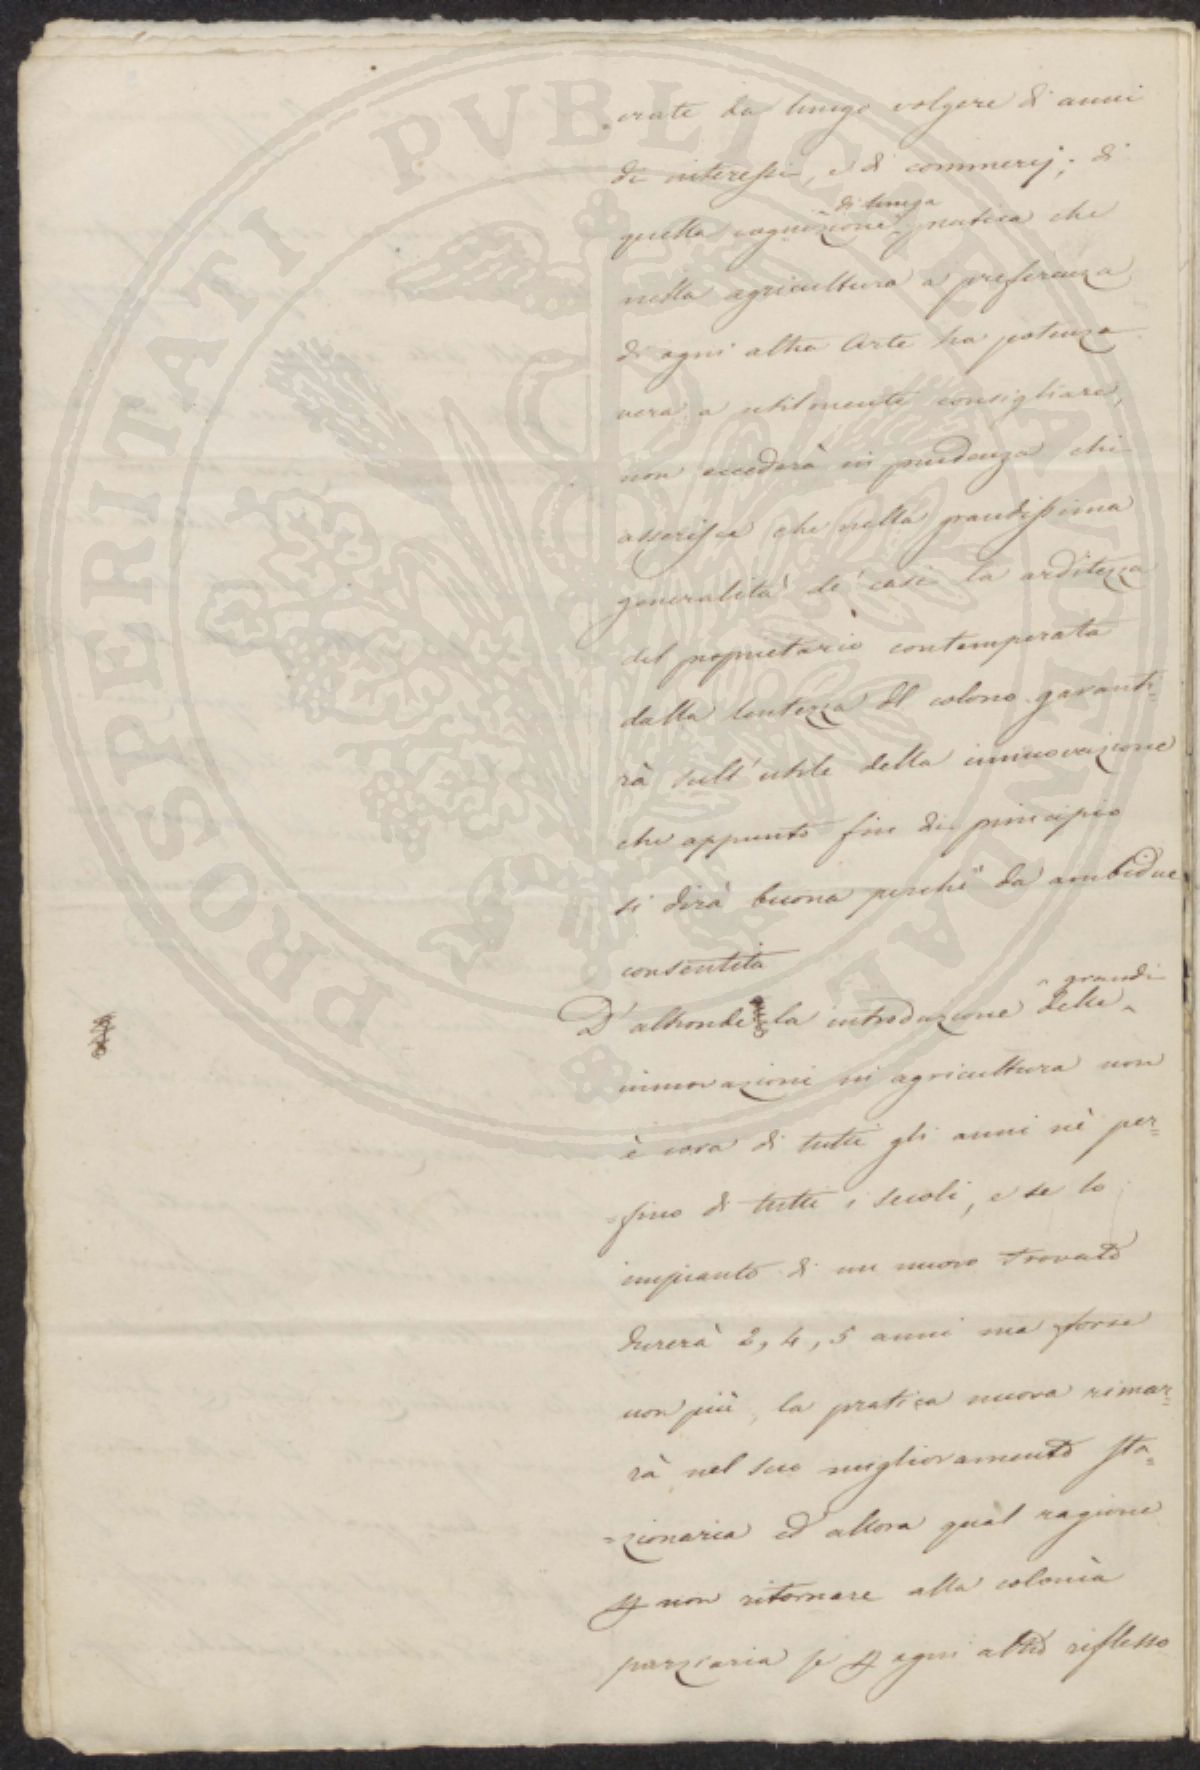 PROSPERITATI PVBLICAE AVGENDAE
-erate da lungo volgere di anni
di interessi, e di commerij; di
quella cognizione di lunga pratica che
nella agricultura a preferenza
di ogni altra Arte ha potenza
vera a utilmente consigliare,
non eccederà in prudenza chi
asserisca che nella grandissima
generalità de' casi la arditezza
del proprietario contemperata
dalla lentezza del colono garanti=
rà sull'utile della innovazione
che appunto fin di principio
si dirà buona perchè da ambidue
consentita
D'altronde la introduzione delle grandi
innovazioni in agricultura non
è cosa di tutti gli anni nè per=
=fino di tutti i secoli, e se lo
impianto di un nuovo trovato
durerà 2, 4, 5 anni ma forse
non più, la pratica nuova rimar=
rà nel suo miglioramento sta=
=zionaria ed allora qual ragione
p non ritornare alla colonìa
parziaria se p ogni altro riflesso